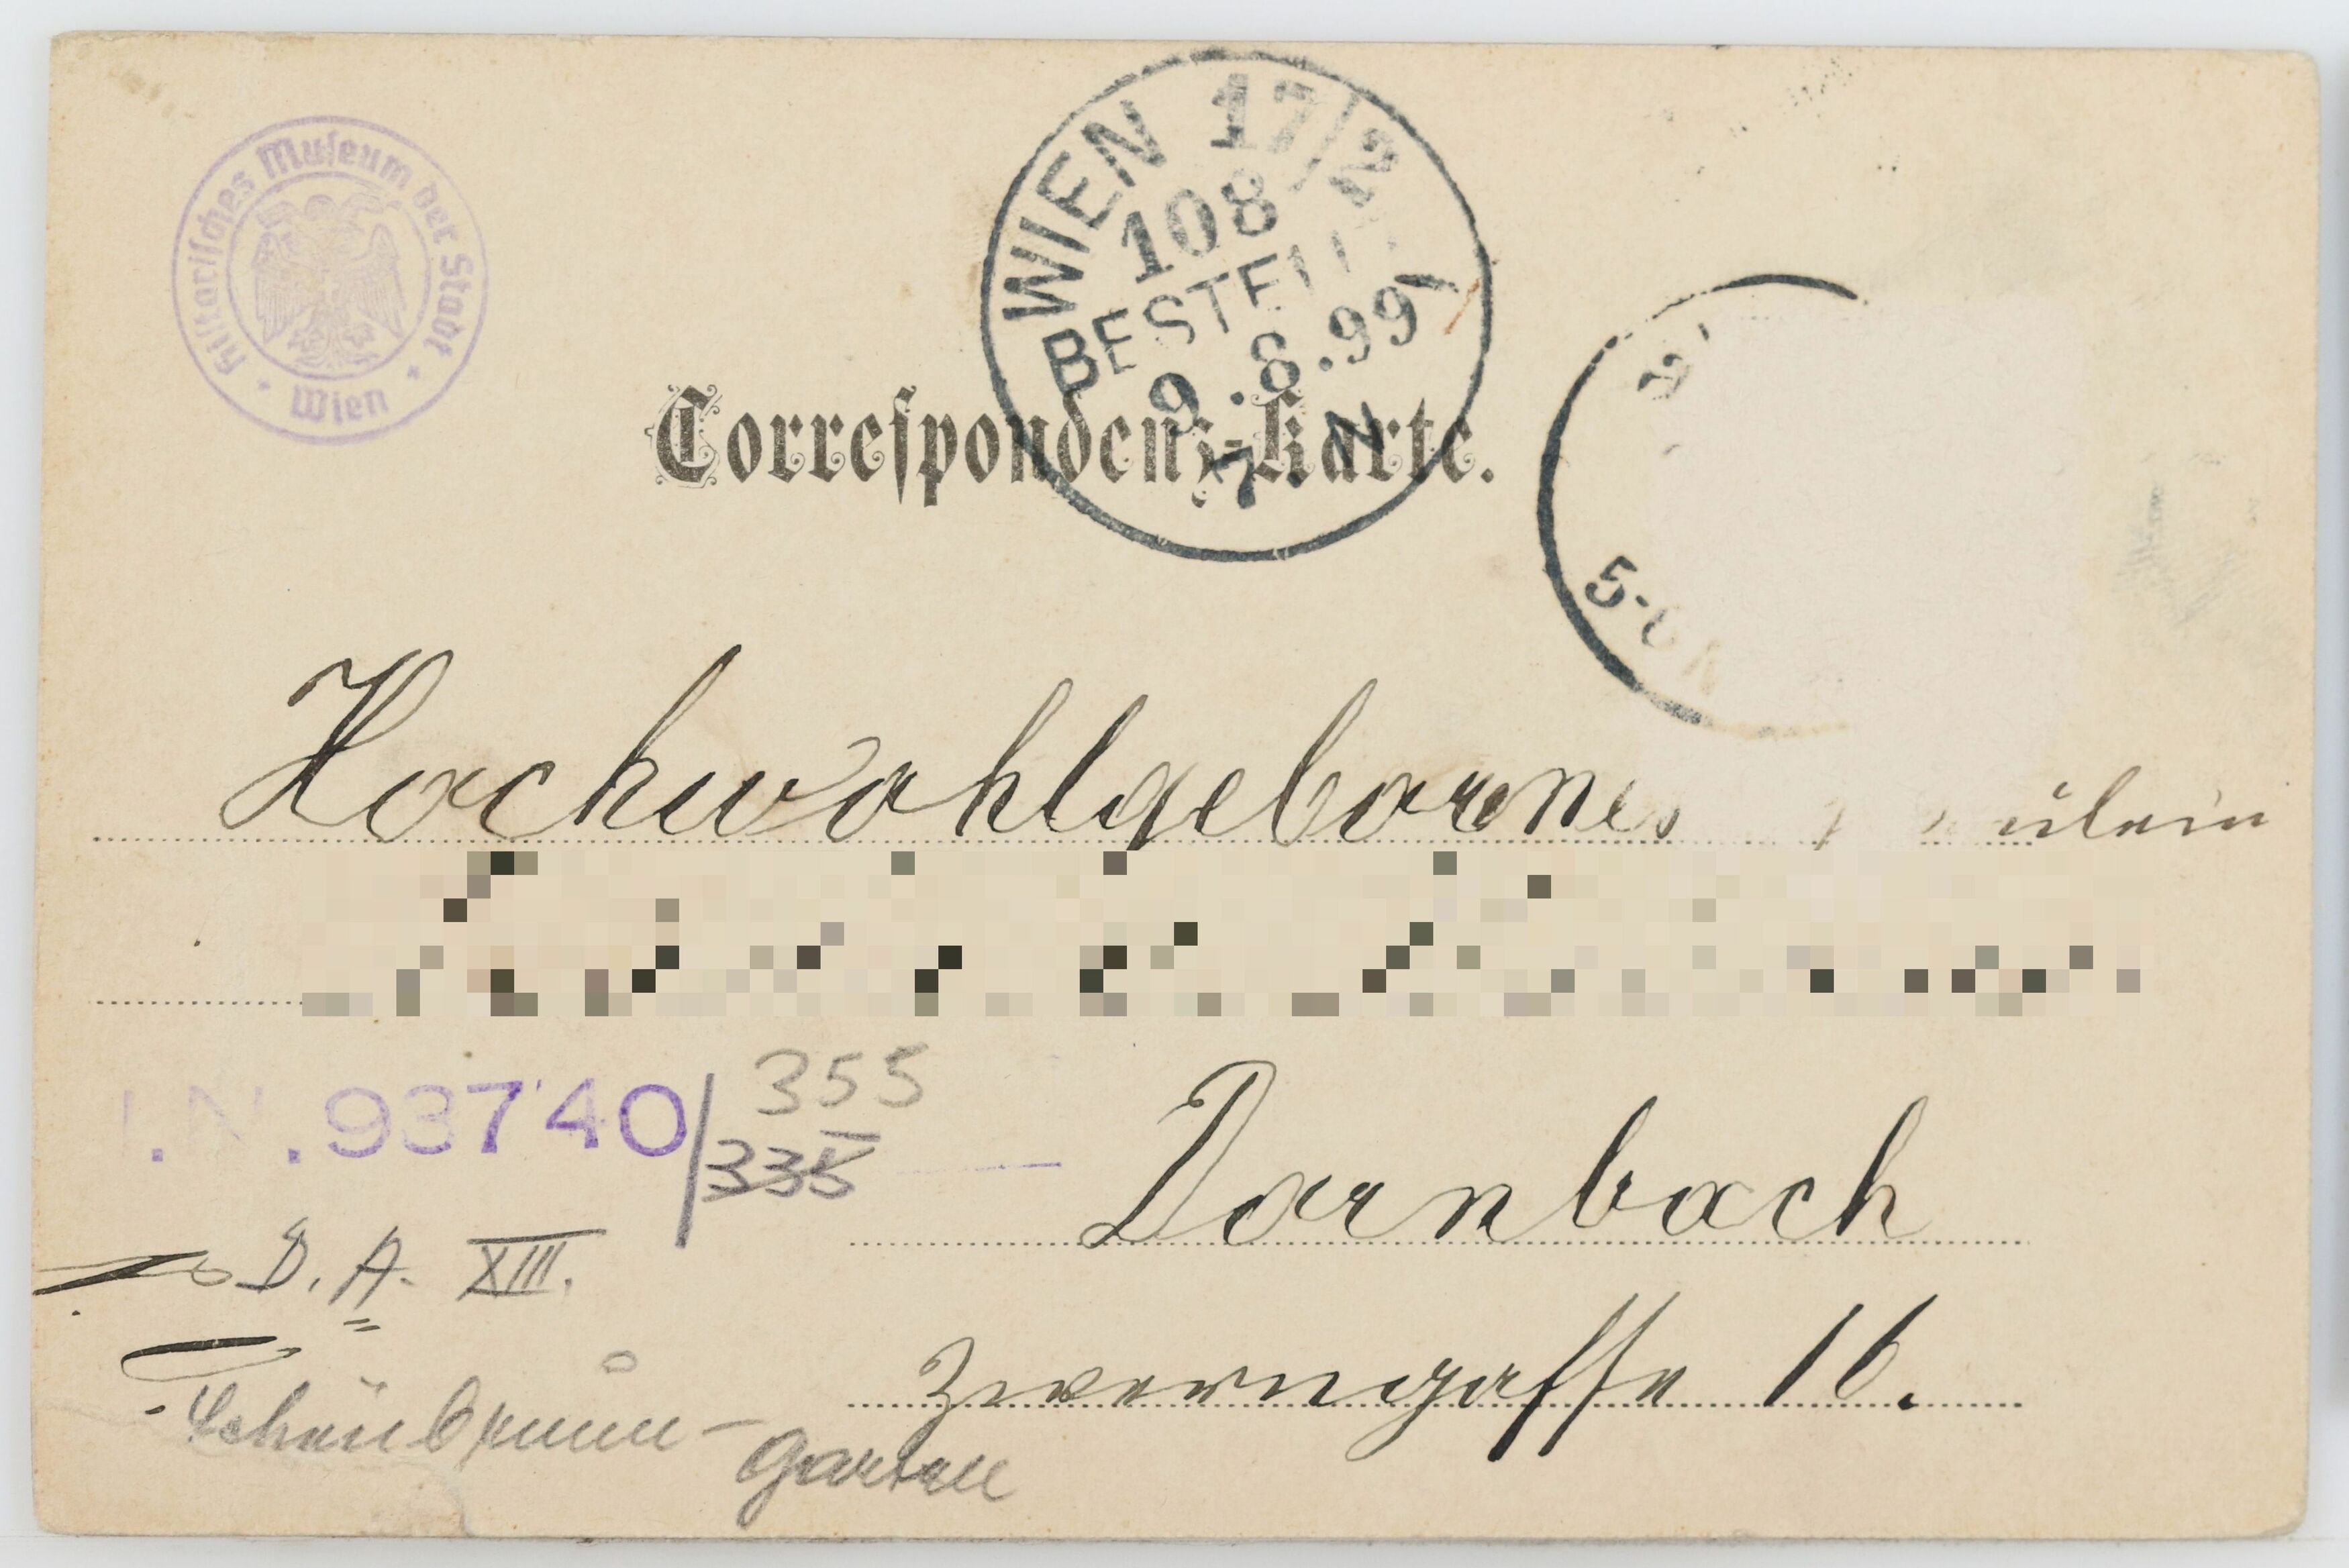 Historisches Museum der Stadt
Wien
WIEN 17/2
108
BESTELLT
9.8.99
7. N
Correspondenz-Karte.
5-6 N
Hochwohlgebornes Fräulein
I.N.93740/355
335
Dornbach
D.A. XIII.
Zwerngasse 16.
Schönbrunn-
garten